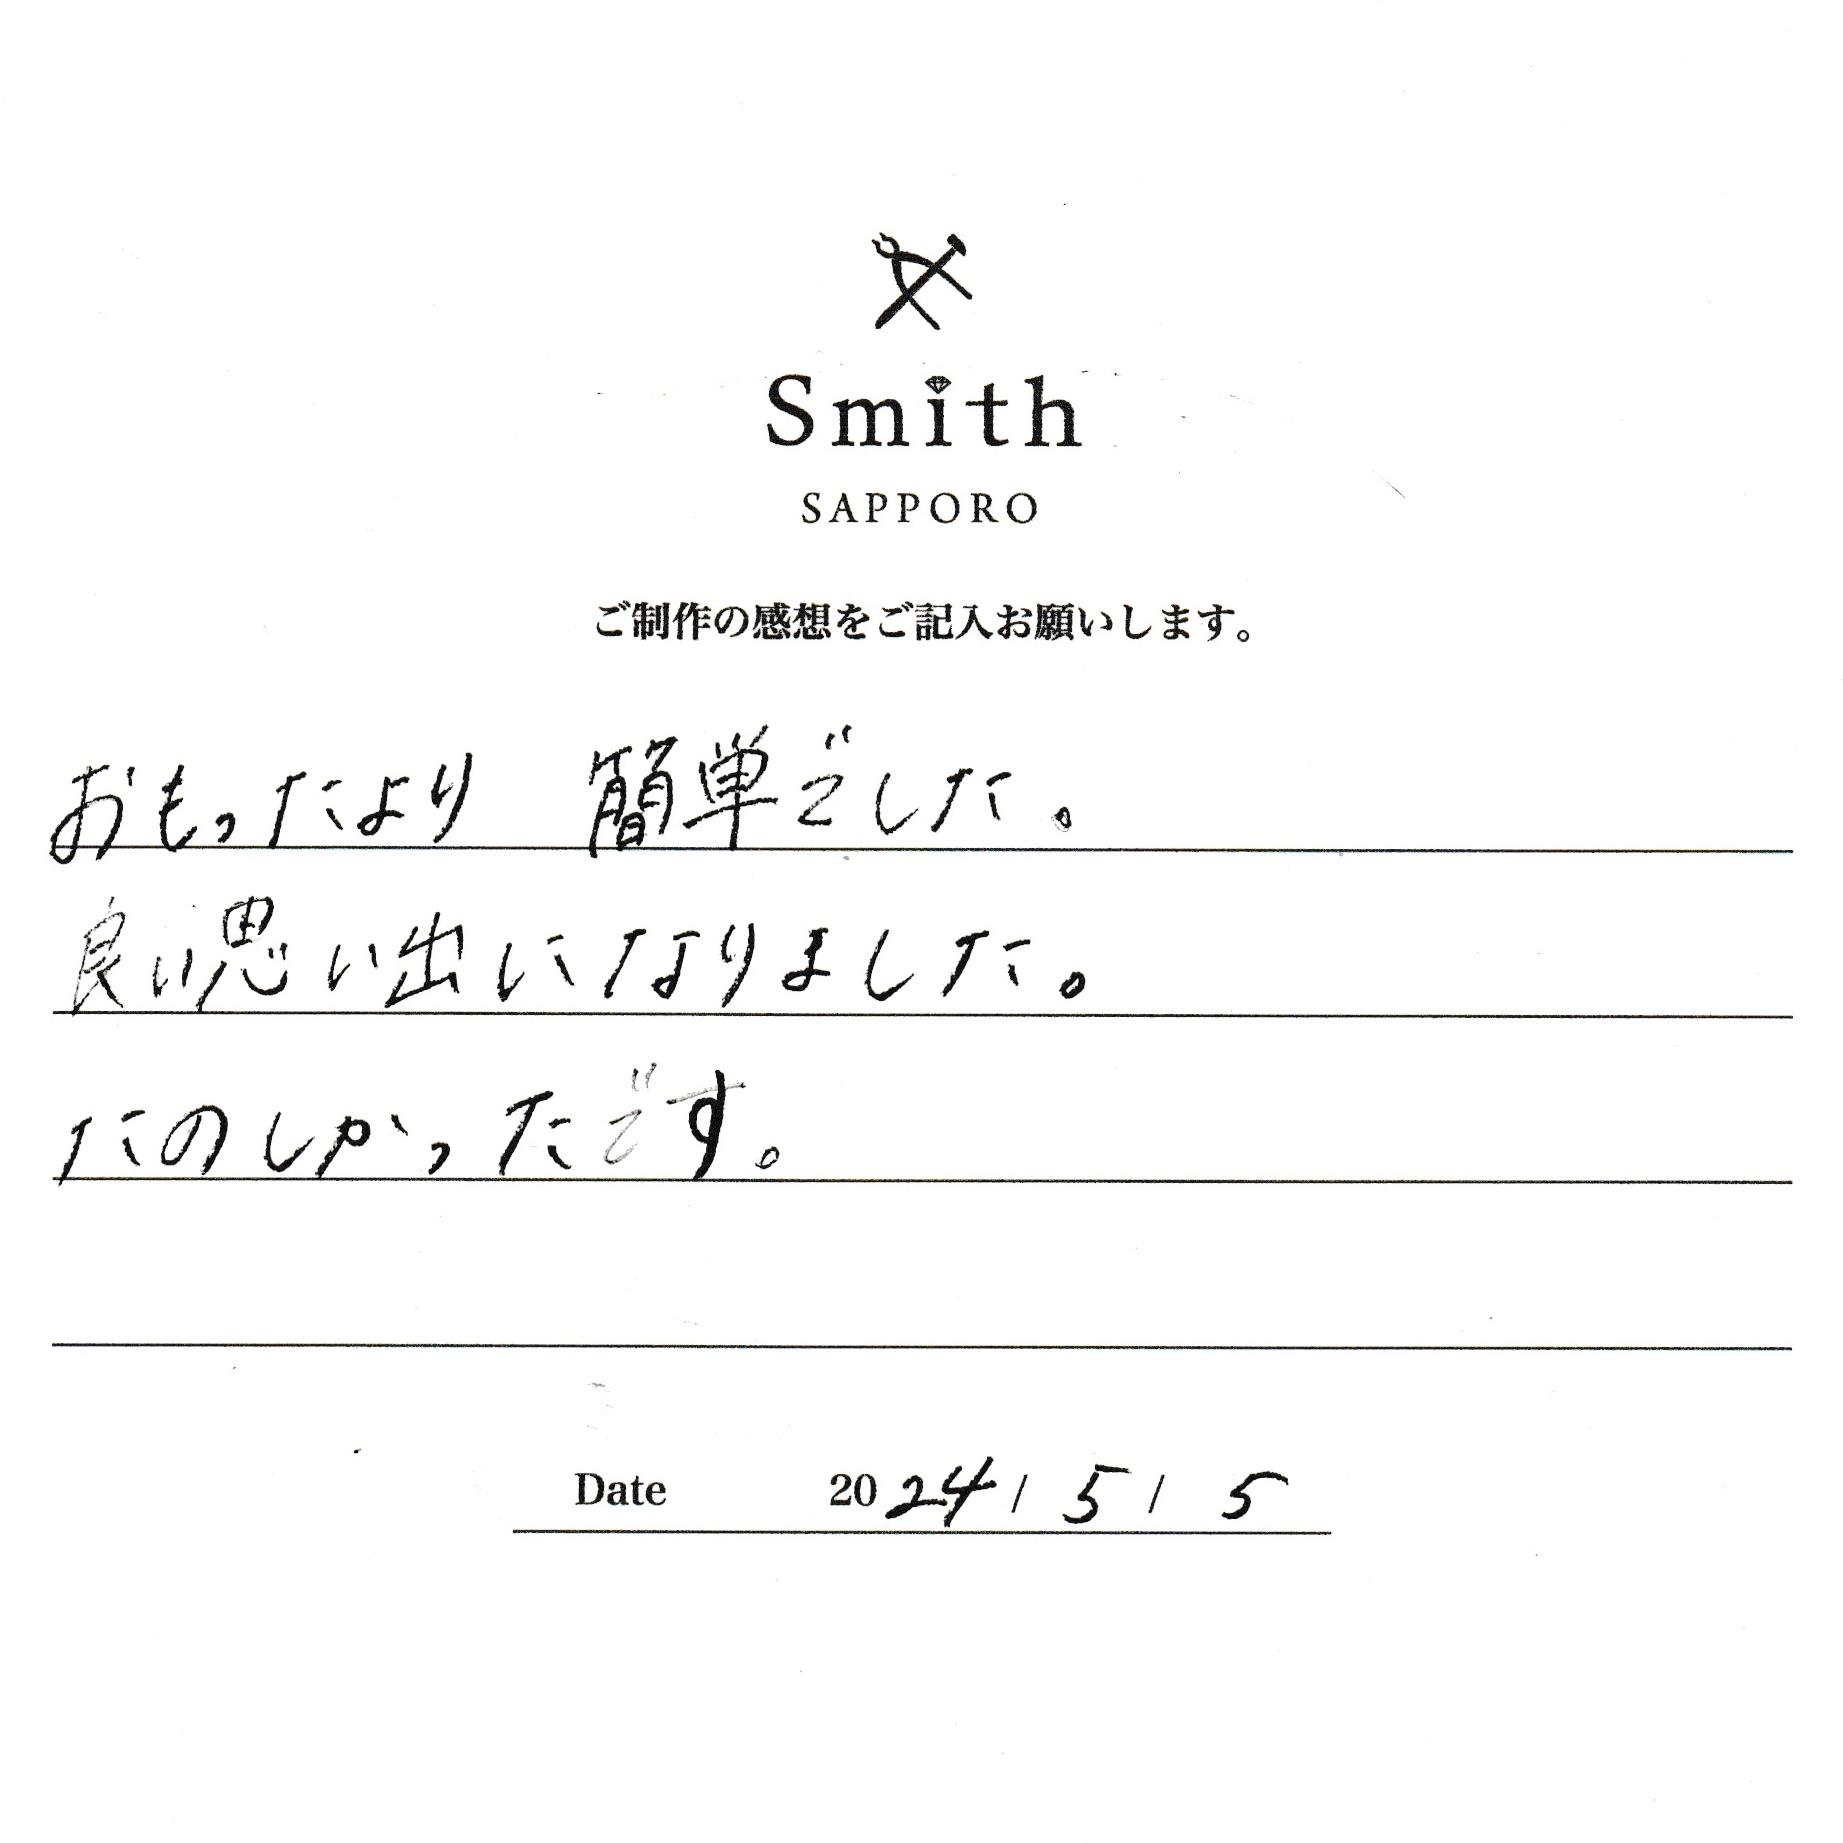 Smith
SAPPORO
ご制作の感想をご記入お願いします。
おもったより 簡単でした。
良い思い出になりました。
たのしかったです。
Date 2024/5/5